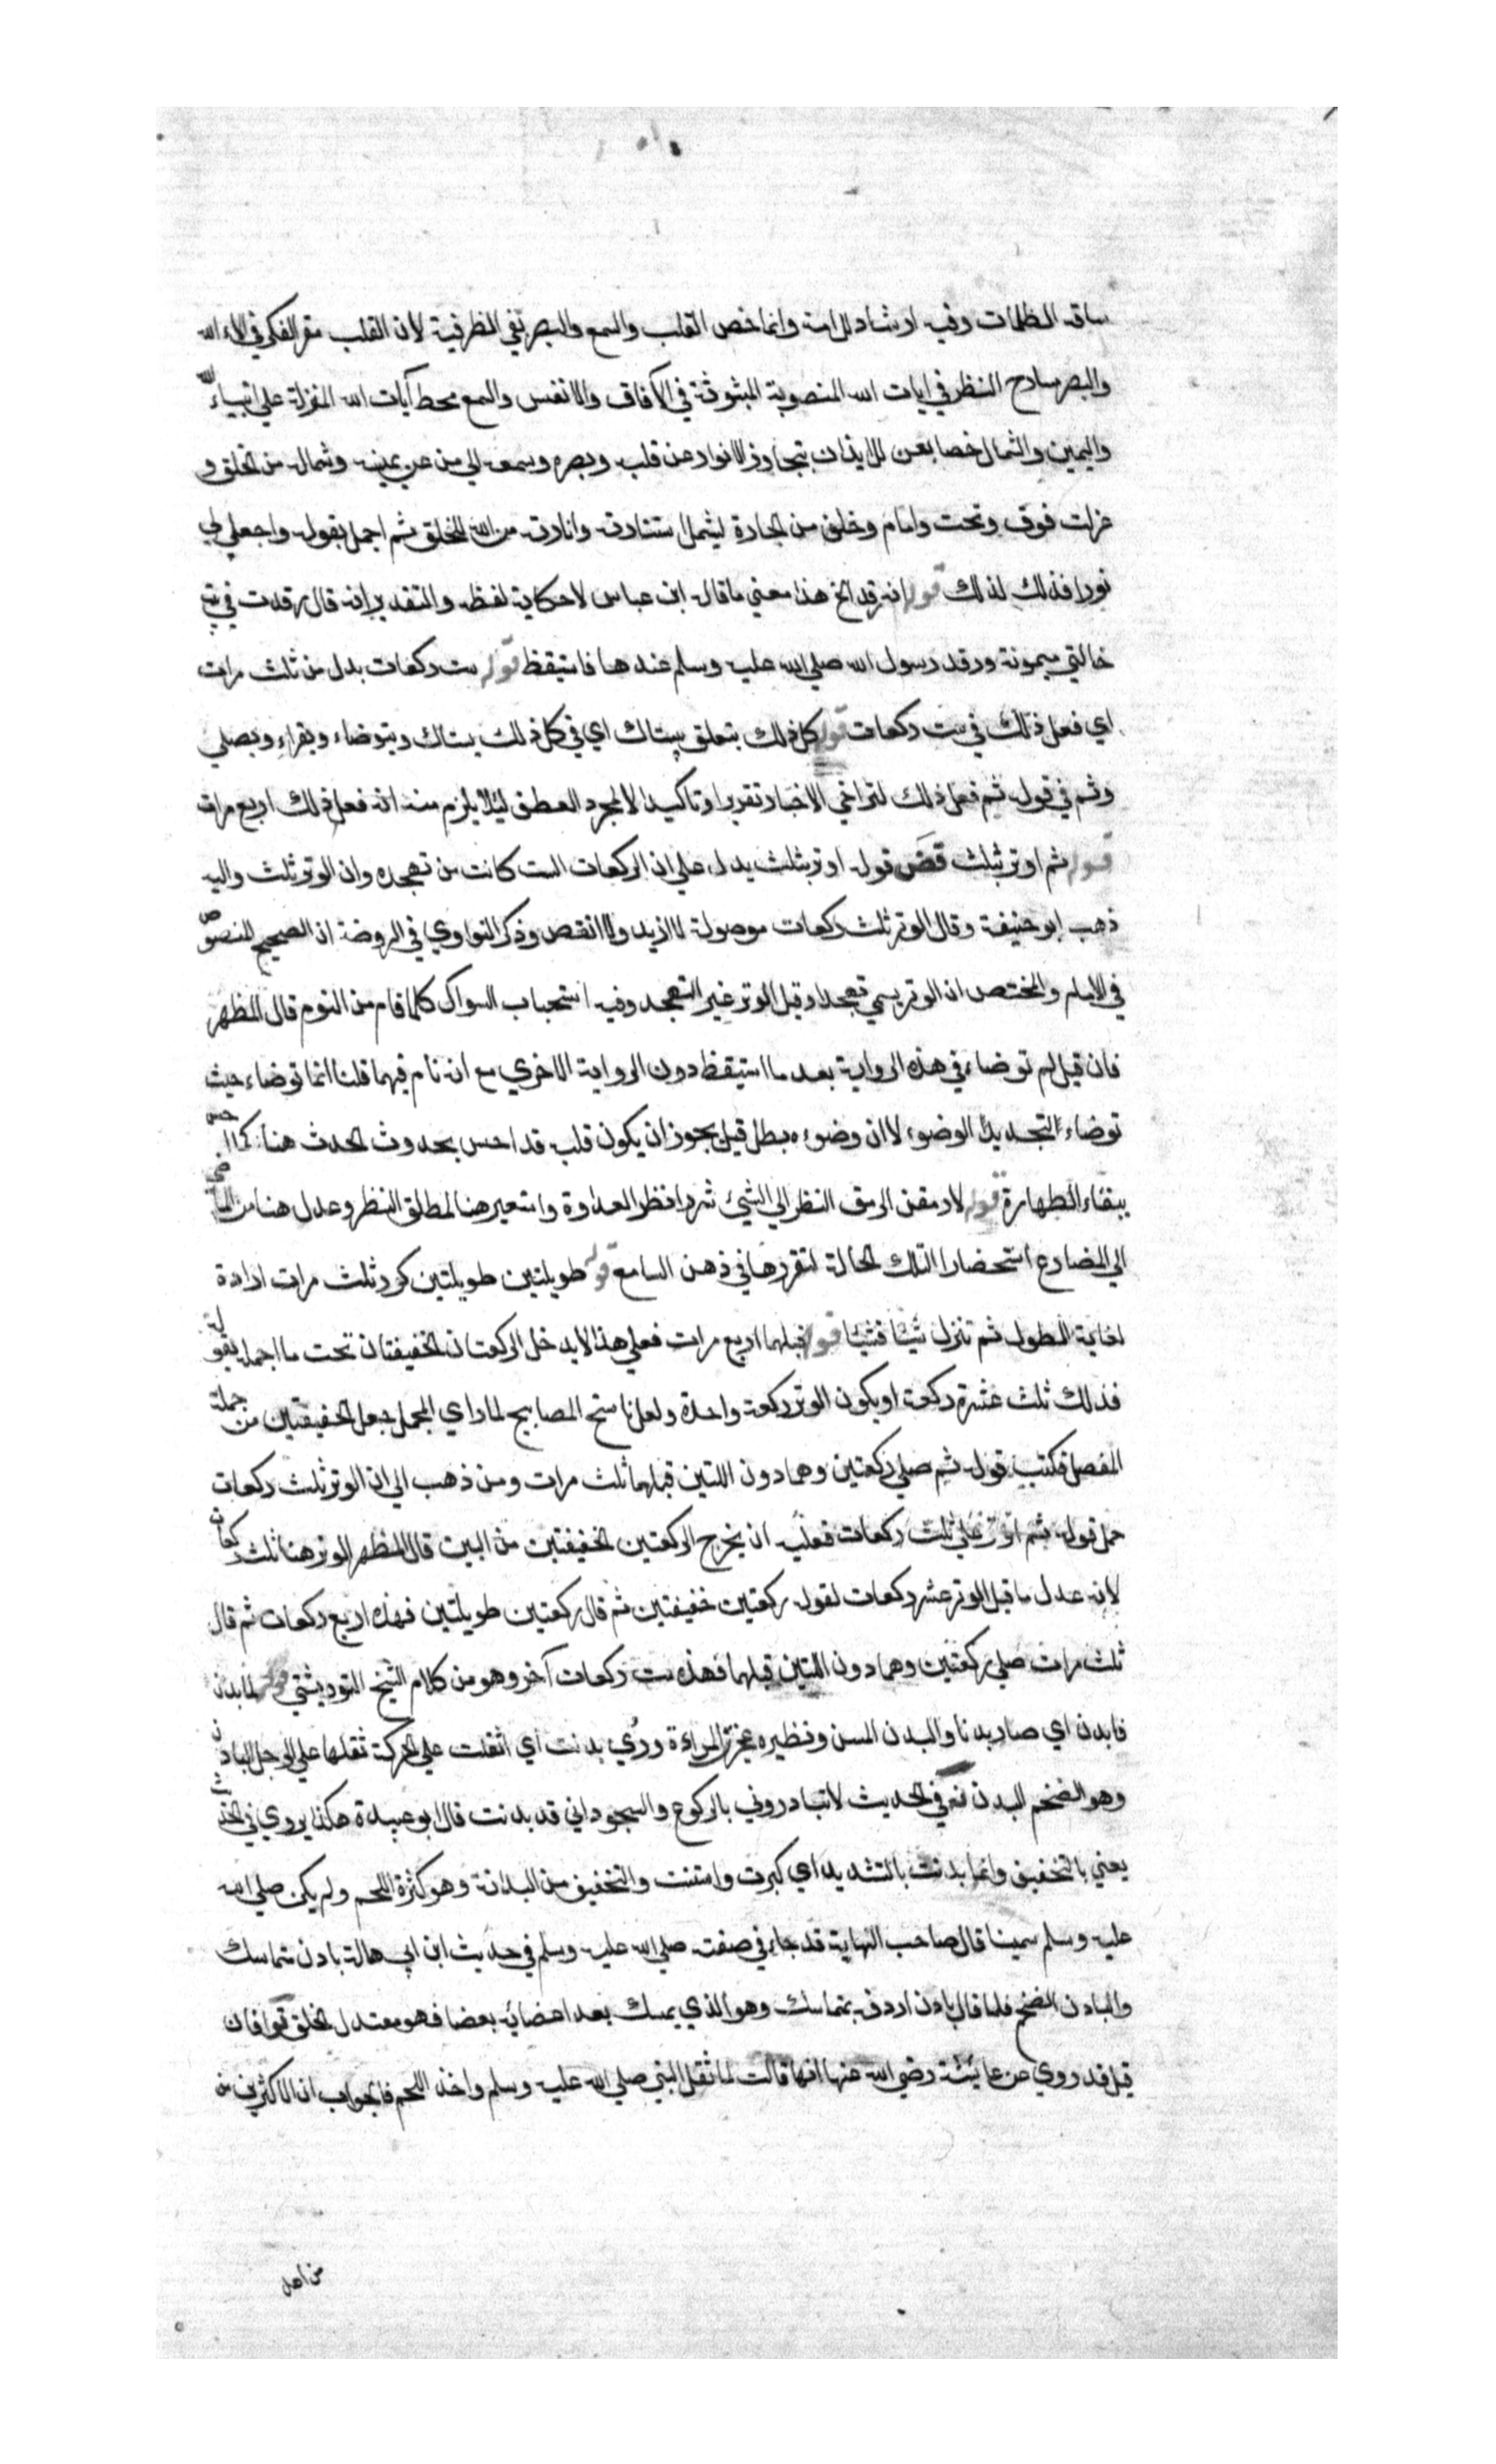 ساقه الظلمات وفيه ارشاد للامة وانما خص القلب والسمع والبصر بفي الظرفية لان القلب مقر الفكر في الاء الله
والبصر مسارح النظر في ايات الله المنصوبة المبثوثة في الآفاق والانفس والسمع محط آيات الله المنزلة علي انبياء الله
واليمين والشمال خصا بعن للايذان بتجاوز الانوار عن قلبه وبصره وسمعه الي من عن يمينه وشماله من الخلق و
عزلت فوق وتحت وامام وخلف من الجارة ليشمل استنارته وانارته من الله للخلق ثم اجمل بقوله واجعل لي
نورا فذلك لذلك قوله انه رقد الخ هذا معني ما قاله ابن عباس لا حكاية لفظه والتقدير انه قال رقدت في بيت
خالتي ميمونة ورقد رسول الله صلي الله عليه وسلم عندها فاستيقظ قوله ست ركعات بدل من ثلث مرات
اي فعل ذلك في ست ركعات قوله كل ذلك يتعلق بيستاك اي في كل ذلك يستاك ويتوضاء ويقراء ويصلي
وثم في قوله ثم فعل ذلك لتراخي الاخبار تقريرا وتاكيدا لا لمجرد العطف ليلا يلزم منه انه فعل ذلك اربع مرات
قوله ثم اوتر بثلث قض قوله اوتر بثلث يدل علي ان الركعات الست كانت من تهجده وان الوتر ثلث واليه
ذهب ابو حنيفة وقال الوتر ثلث ركعات موصولة لا ازيد ولا انقص وذكر النواوي في الروضة ان الصحيح المنصوص
في الام والمختصر ان الوتر يسمي تهجدا وقيل الوتر غير التهجد وفيه استحباب السواك كلما قام من النوم قال المظهر
فان قيل لم توضاء في هذه الرواية بعد ما استيقظ دون الرواية الاخري مع انه نام فيهما قلنا انما توضاء حيث
توضاء لتجديد الوضوء لا ان وضوءه بطل قيل يجوز ان يكون قلبه قد احس بحدوث الحدث هنا كما احس
ببقاء الطهارة قوله لارمقن الرمق النظر الي الشئ شزرا نظر العداوة واستعير هنا لمطلق النظر وعدل هنا من الماضي
الي المضارع استحضارا لتلك الحالة لتقررها في ذهن السامع قوله طويلتين طويلتين كرر ثلث مرات ارادة
لغاية الطول ثم تنزل شيئا فشيئا قوله قبلهما اربع مرات فعلي هذا لا يدخل الركعتان الخفيفتان تحت ما اجمله بقوله
فذلك ثلث عشرة ركعة او يكون الوتر ركعة واحدة ولعل ناسخ المصابيح لما راي المجمل جعل الخفيفتين من جملة
المفصل فكتب قوله ثم صلي ركعتين وهما دون اللتين قبلهما ثلث مرات ومن ذهب الي ان الوتر ثلث ركعات
حمل قوله ثم اوتر علي ثلث ركعات فعليه ان يخرج الركعتين الخفيفتين من البين قال المظهر الوتر هنا ثلث ركعات
لانه عدل ما قبل الوتر عشر ركعات لقوله ركعتين خفيفتين ثم قال ركعتين طويلتين فهذه اربع ركعات ثم قال
ثلث مرات صلي ركعتين وهما دون اللتين قبلهما فهذه ست ركعات آخر وهو من كلام الشيخ التوربشتي قوله لما بدن
فا بدن اي صار بدنا والبدن المسن ونظيره عجزت المراءة وروي بدنت اي اثقلت علي الحركة ثقلها علي الرجل البادن
وهو الضخم البدن نه في الحديث لا تبادروني بالركوع والسجود اني قد بدنت قال ابو عبيدة هكذا يروي في الحديث
يعني بالتخفيف وانما بدنت بالتشديد اي كبرت واسننت والتخفيف من البدانة وهو كثرة اللحم ولم يكن صلي الله
عليه وسلم سمينا قال صاحب النهاية قد جاء في صفته صلي الله عليه وسلم في حديث ابن ابي هالة بادن متماسك
والبادن الضخم فلما قال بادن اردفه بمتماسك وهو الذي يمسك بعد اعضائه بعضا فهو معتدل الخلق تو فان
قيل قد روي عن عائشة رضي الله عنها انها قالت لما ثقل النبي صلي الله عليه وسلم واخذ اللحم فالجواب ان الاكثرين من
من اهل